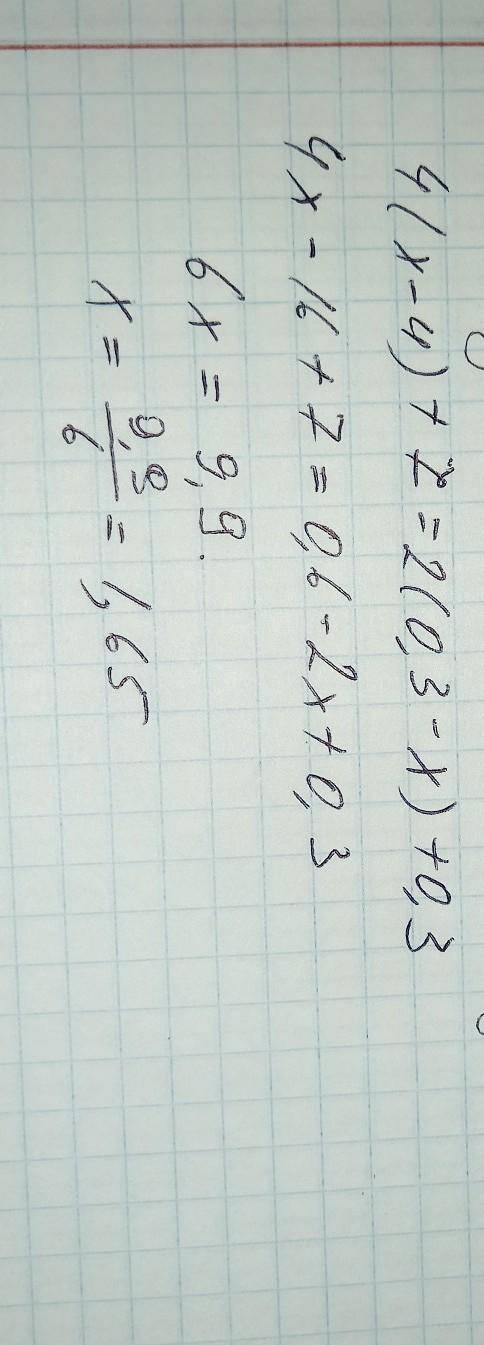 4(x-4)+7=2(0,3-x)+0,3
4x-16+7=0,6-2x+0,3
6x=9,9.
x=9,9/6=1,65